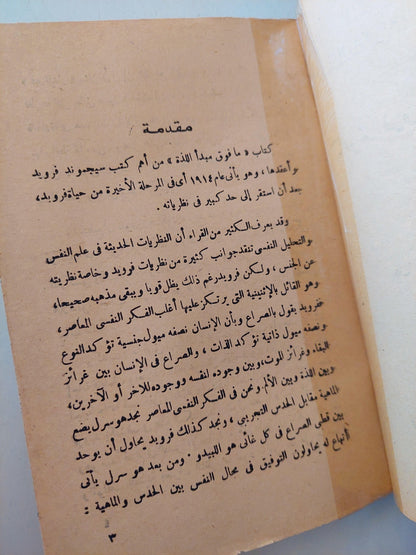 مقدمة
كتاب « ما فوق مبدأ اللذة » من أهم كتب سيجموند فرويد
وأعقدها ، وهو يأتى عام ١٩١٤ أى فى المرحلة الأخيرة من حياة فرويد ،
بعد أن استقر إلى حد كبير فى نظرياته .
وقد يعرف الكثير من القراء أن النظريات الحديثة فى علم النفس
والتحليل النفسى تنقد جوانب كثيرة من نظريات فرويد وخاصة نظريته
عن الجنس ، ولكن فرويد رغم ذلك يظل قويا ويبقى مذهبه صحيحا ،
وهو القائل بالإثنينية التى يرتكز عليها أغلب الفكر النفسى المعاصر ،
ففرويد يقول بالصراع وبأن الإنسان نصفه ميول جنسية تؤكد النوع
ونصفه ميول ذاتية تؤكد الذات ، والصراع فى الإنسان بين غرائز
البقاء وغرائز الموت ، وبين وجوده لنفسه ووجوده للآخر أو الآخرين ،
وبين اللذة وبين الألم ونحن فى الفكر النفسى المعاصر نجد هوسرل يضع
الماهية مقابل الحدس التجريبى ، ونجد كذلك فرويد يحاول أن يوحد
بين قطبى الصراع فى كل غائى هو الليبيدو . ومن بعد هوسرل يأتى
أتباع له يحاولون التوفيق فى مجال النفس بين الحدس والماهية :
٣